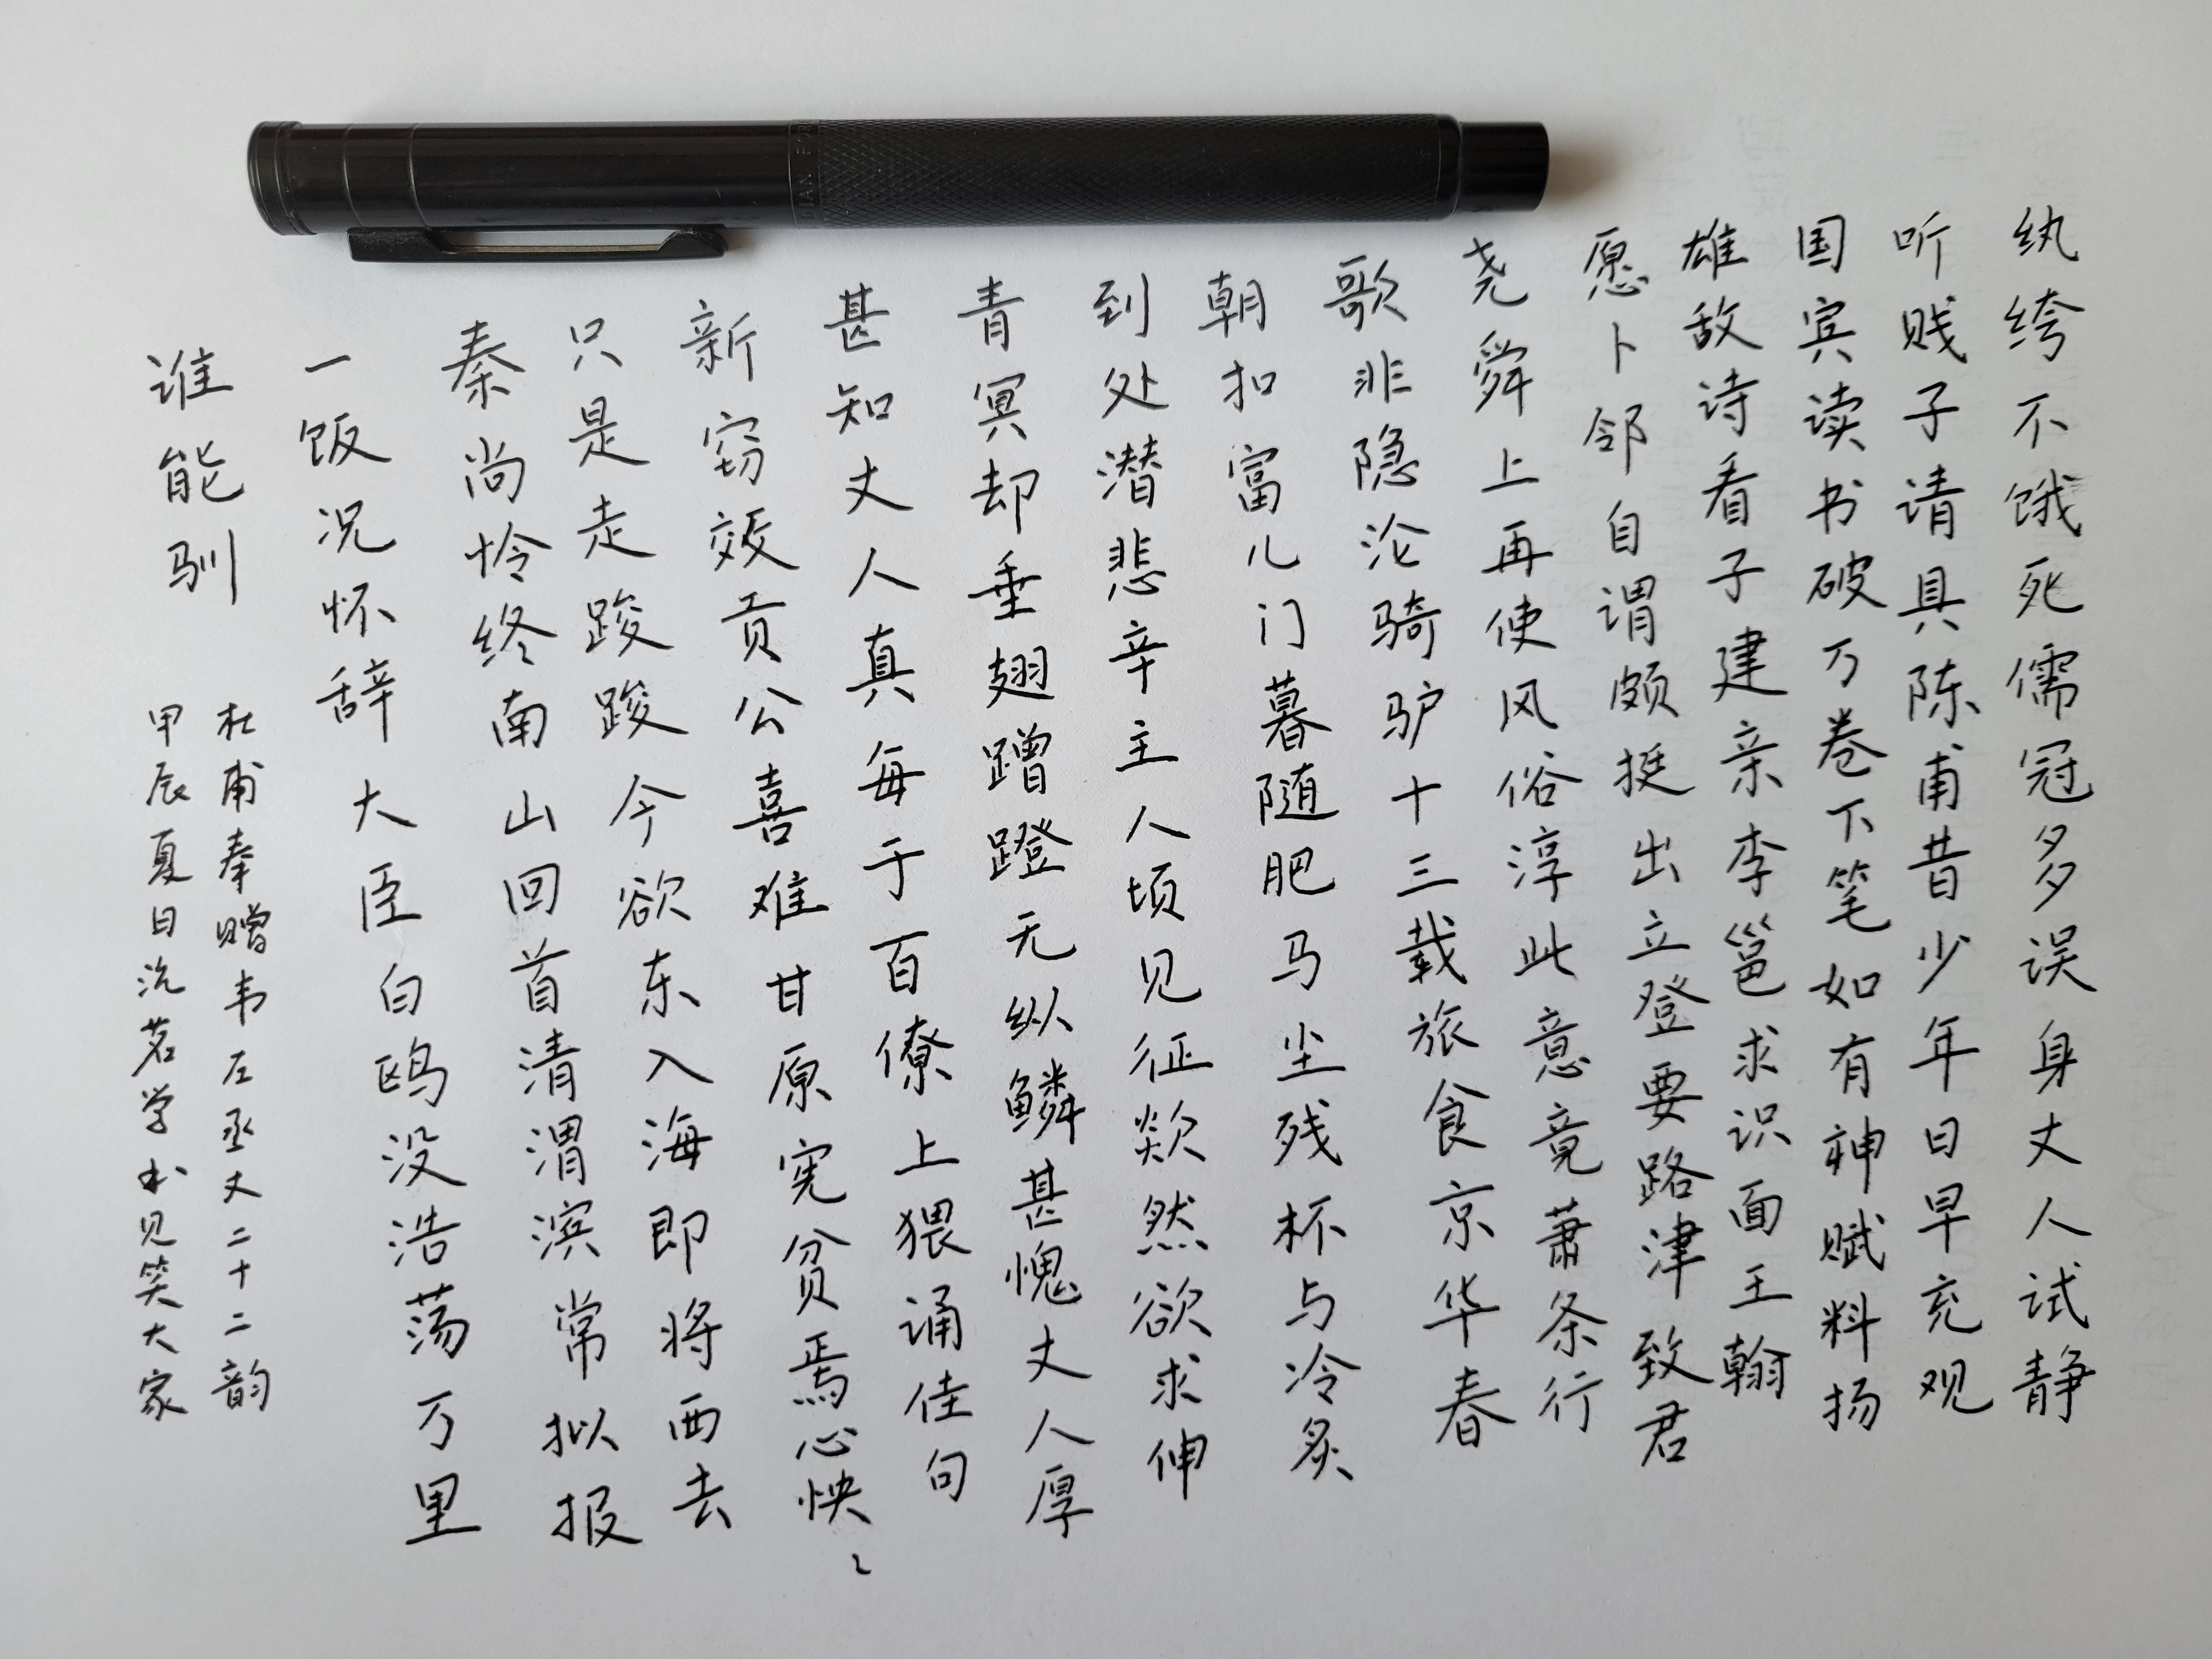 纨绔不饿死儒冠多误身丈人试静
听贱子请具陈甫昔少年日早充观
国宾读书破万卷下笔如有神赋料扬
雄敌诗看子建亲李邕求识面王翰
愿卜邻自谓颇挺出立登要路津致君
尧舜上再使风俗淳此意竟萧条行
歌非隐沦骑驴十三载旅食京华春
朝扣富儿门暮随肥马尘残杯与冷炙
到处潜悲辛主人顷见征欻然欲求伸
青冥却垂翅蹭蹬无纵鳞甚愧丈人厚
甚知丈人真每于百僚上猥诵佳句
新窃效贡公喜难甘原宪贫焉心怏々
只是走踆踆今欲东入海即将西去
秦尚怜终南山回首清渭滨常拟报
一饭况怀辞大臣白鸥没浩荡万里
谁能驯
杜甫奉赠韦左丞丈二十二韵
甲辰夏日沈茗学书见笑大家
DIAN